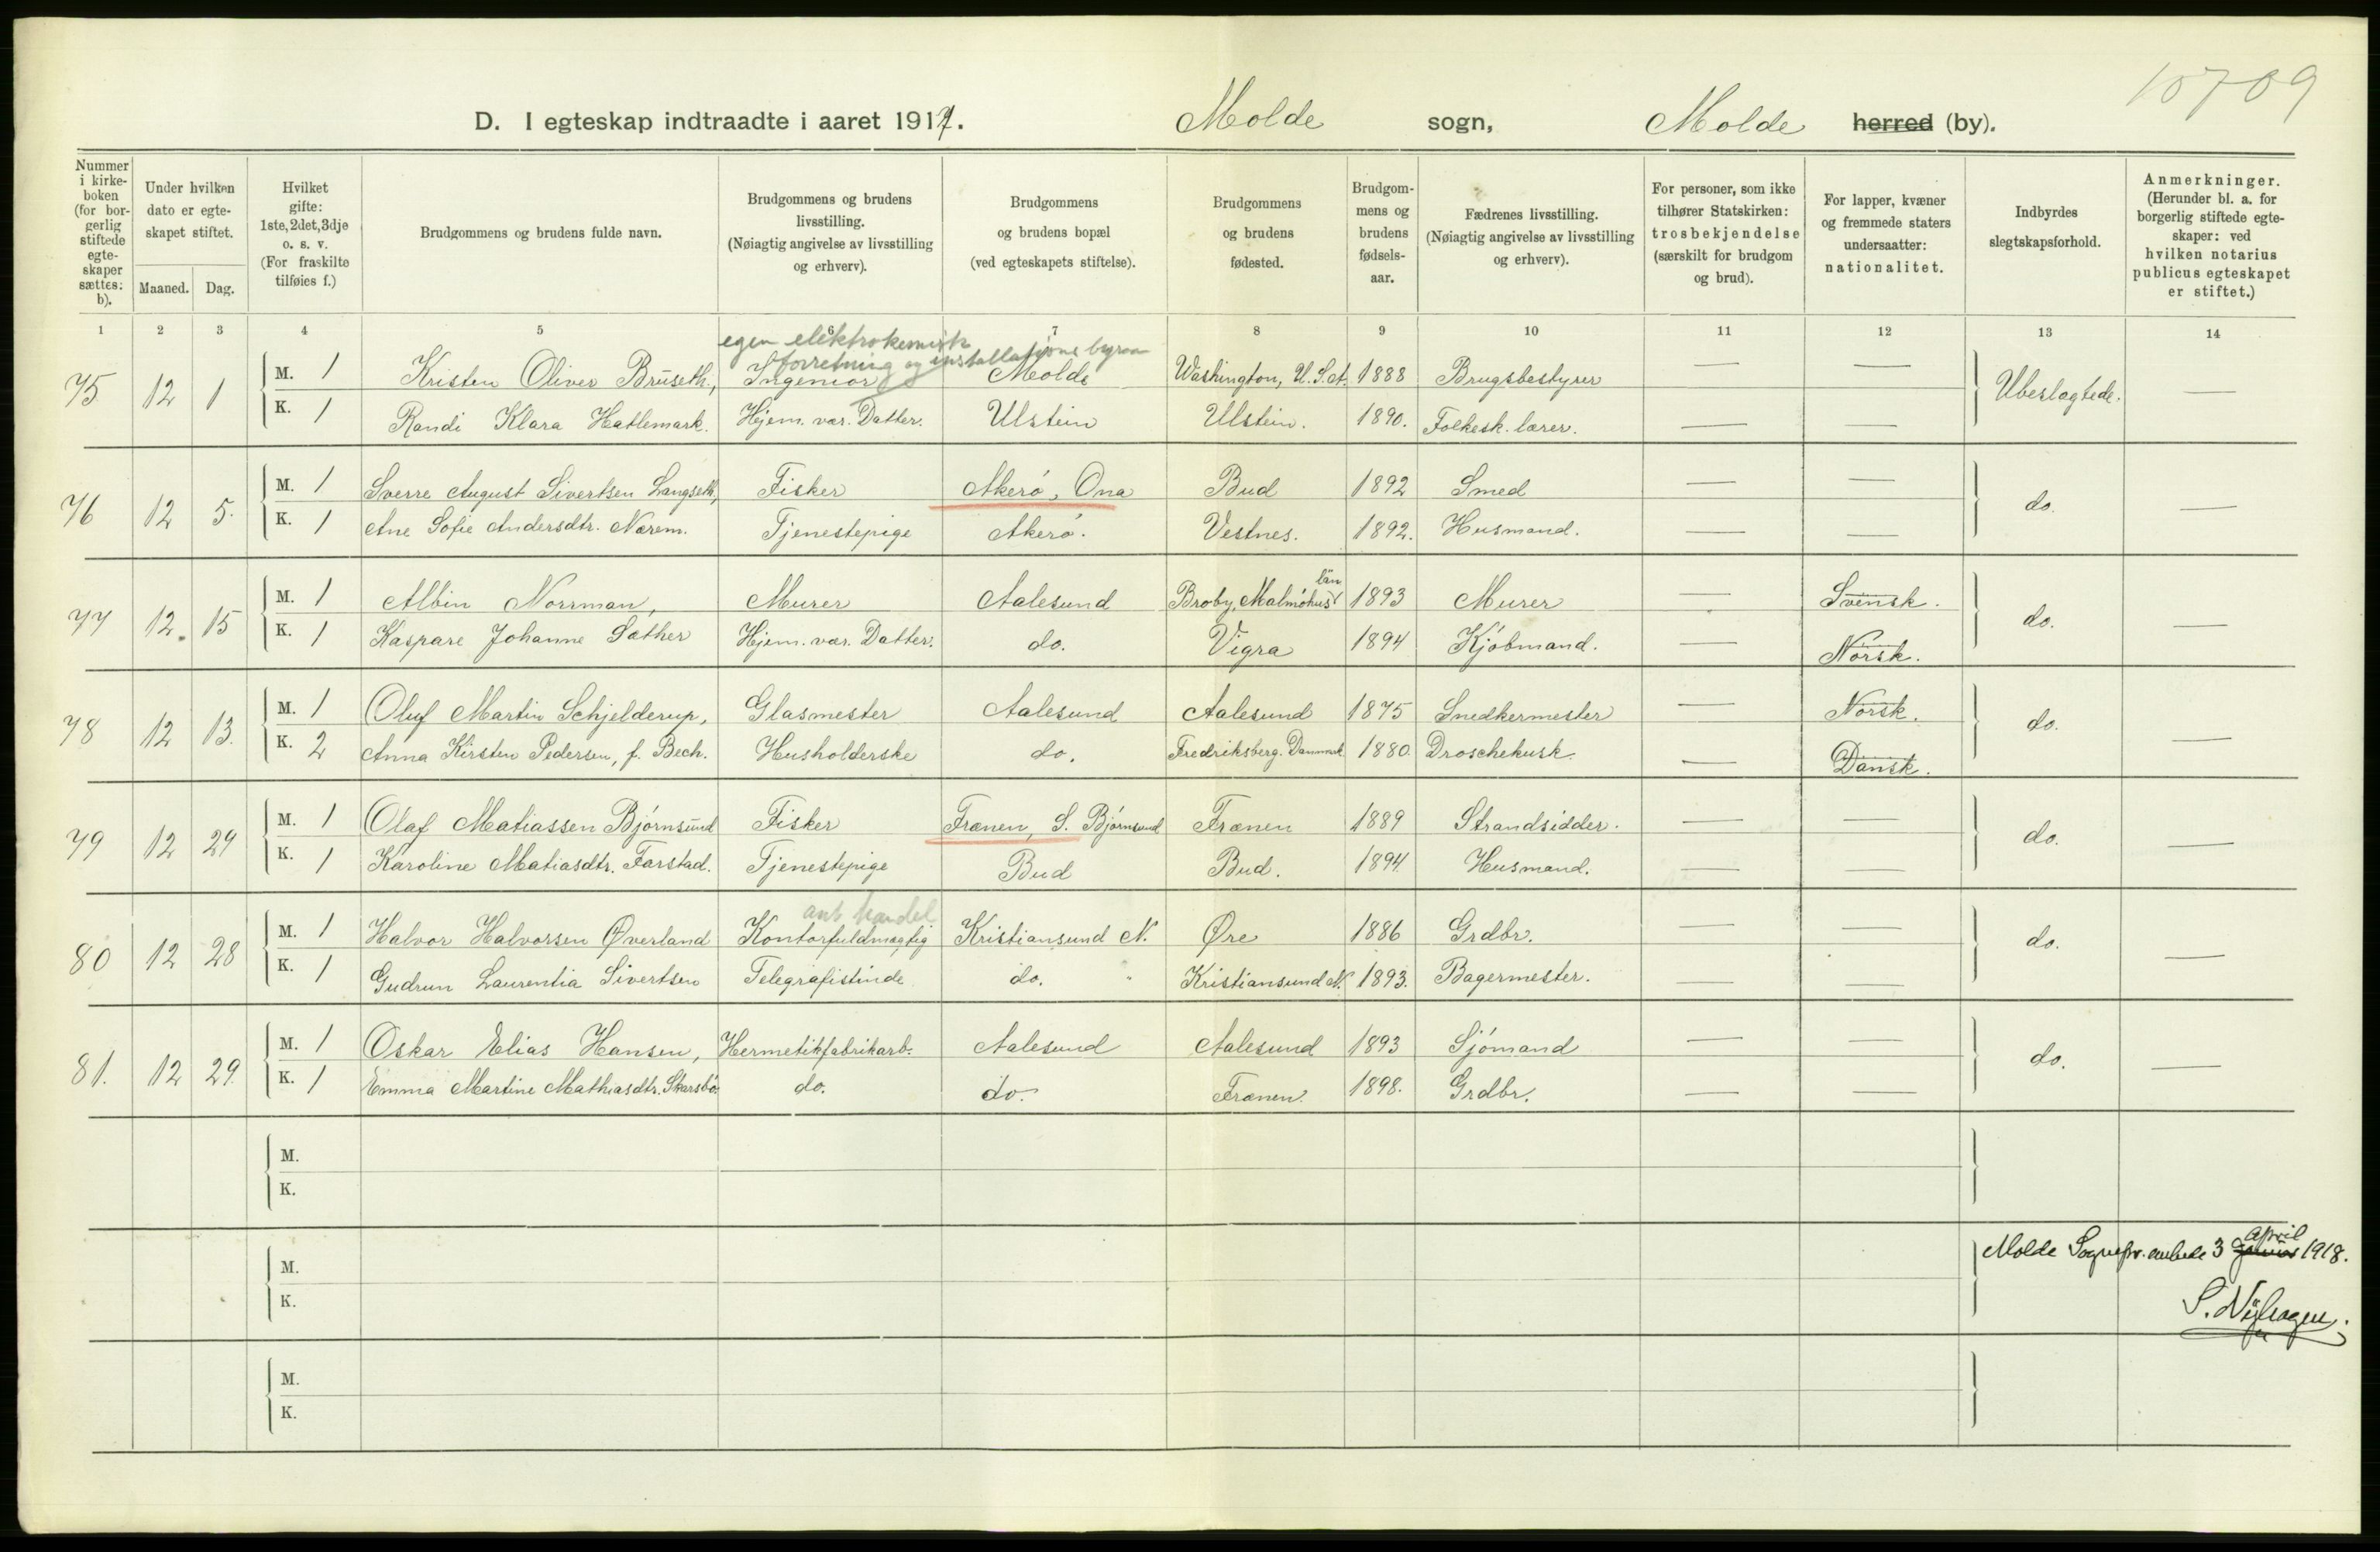 10709
D. I egteskap indtraadte i aaret 1917. Molde sogn, Molde herred (by).
Nummer i kirke-boken (for bor-gerlig stiftede egte-skaper sættes: b).
Under hvilken dato er egte-skapet stiftet.
Maaned. Dag.
Hvilket gifte: 1ste, 2det, 3dje o. s. v. (For fraskilte tilføies f.)
Brudgommens og brudens fulde navn.
Brudgommens og brudens livsstilling. (Nøiagtig angivelse av livsstilling og erhverv).
Brudgommens og brudens bopæl (ved egteskapets stiftelse).
Brudgommens og brudens fødested.
Brudgom-mens og brudens fødsels-aar.
Fædrenes livsstilling. (Nøiagtig angivelse av livsstilling og erhverv).
For personer, som ikke tilhører Statskirken: trosbekjendelse (særskilt for brudgom og brud).
For lapper, kvæner og fremmede staters undersaatter: nationalitet.
Indbyrdes slegtskapsforhold.
Anmerkninger. (Herunder bl. a. for borgerlig stiftede egte-skaper: ved hvilken notarius publicus egteskapet er stiftet.)
1 2 3 4 5 6 7 8 9 10 11 12 13 14
egen elektrokemisk
forretning og installations byraa
75 12 1 M. 1 Kristen Oliver Brüseth, Ingeniør Molde Washington, U.S.A. 1888 Brugsbestyrer — — Ubeslagtede. —
K. 1 Randi Klara Hatlemark. Hjem. vær. Datter. Ulstein Ulstein. 1890. Folkesk. lærer. — —
76 12 5. M. 1 Sverre August Sivertsen Langseth, Fisker Akerö, Ona Bud 1892 Smed — — do. —
K. 1 Ane Sofie Andersdtr. Nærem. Tjenestepige Akerö. Vestnes. 1892. Husmand. — —
77 12. 15 M. 1 Albin Norrman, Murer Aalesund Broby, Malmöhus län 1893 Murer — Svensk. do. —
K. 1 Kaspare Johanne Sæther Hjem. vær. Datter. do. Vigra 1894 Kjöbmand. — Norsk.
78 12 13. M. 1 Oluf Martin Schjelderup, Glasmester Aalesund Aalesund 1875 Snedkermester — Norsk. do. —
K. 2 Anna Kirsten Pedersen, f. Bech. Husholderske do. Fredriksberg. Danmark 1880. Droschekusk. — Dansk.
79 12 29 M. 1 Olaf Matiassen Björnsund Fisker Frænen, S. Björnsund Frænen 1889 Strandsidder. — — do. —
K. 1 Karoline Matiasdtr. Farstad. Tjenestepige Bud Bud. 1894. Husmand. — —
ant handel
80 12 28 M. 1 Halvor Halvorsen Øverland Kontorfuldmægtig Kristiansund N. Øre 1886 Grdbr. — — do. —
K. 1 Gudrun Laurentia Sivertsen Telegrafistinde do. " Kristiansund N. 1893. Bagermester. — —
81. 12 29. M. 1 Oskar Elias Hansen, Hermetikfabrikarb. Aalesund Aalesund 1893 Sjömand — — do. —
K. 1 Emma Martine Mathiasdtr. Skarsbö. do. do. Frænen. 1898. Grdbr. — —
M.
K.
M.
K.
Molde Sognepr. embede 3 januar april 1918.
S. Nÿhagen.
M.
K.